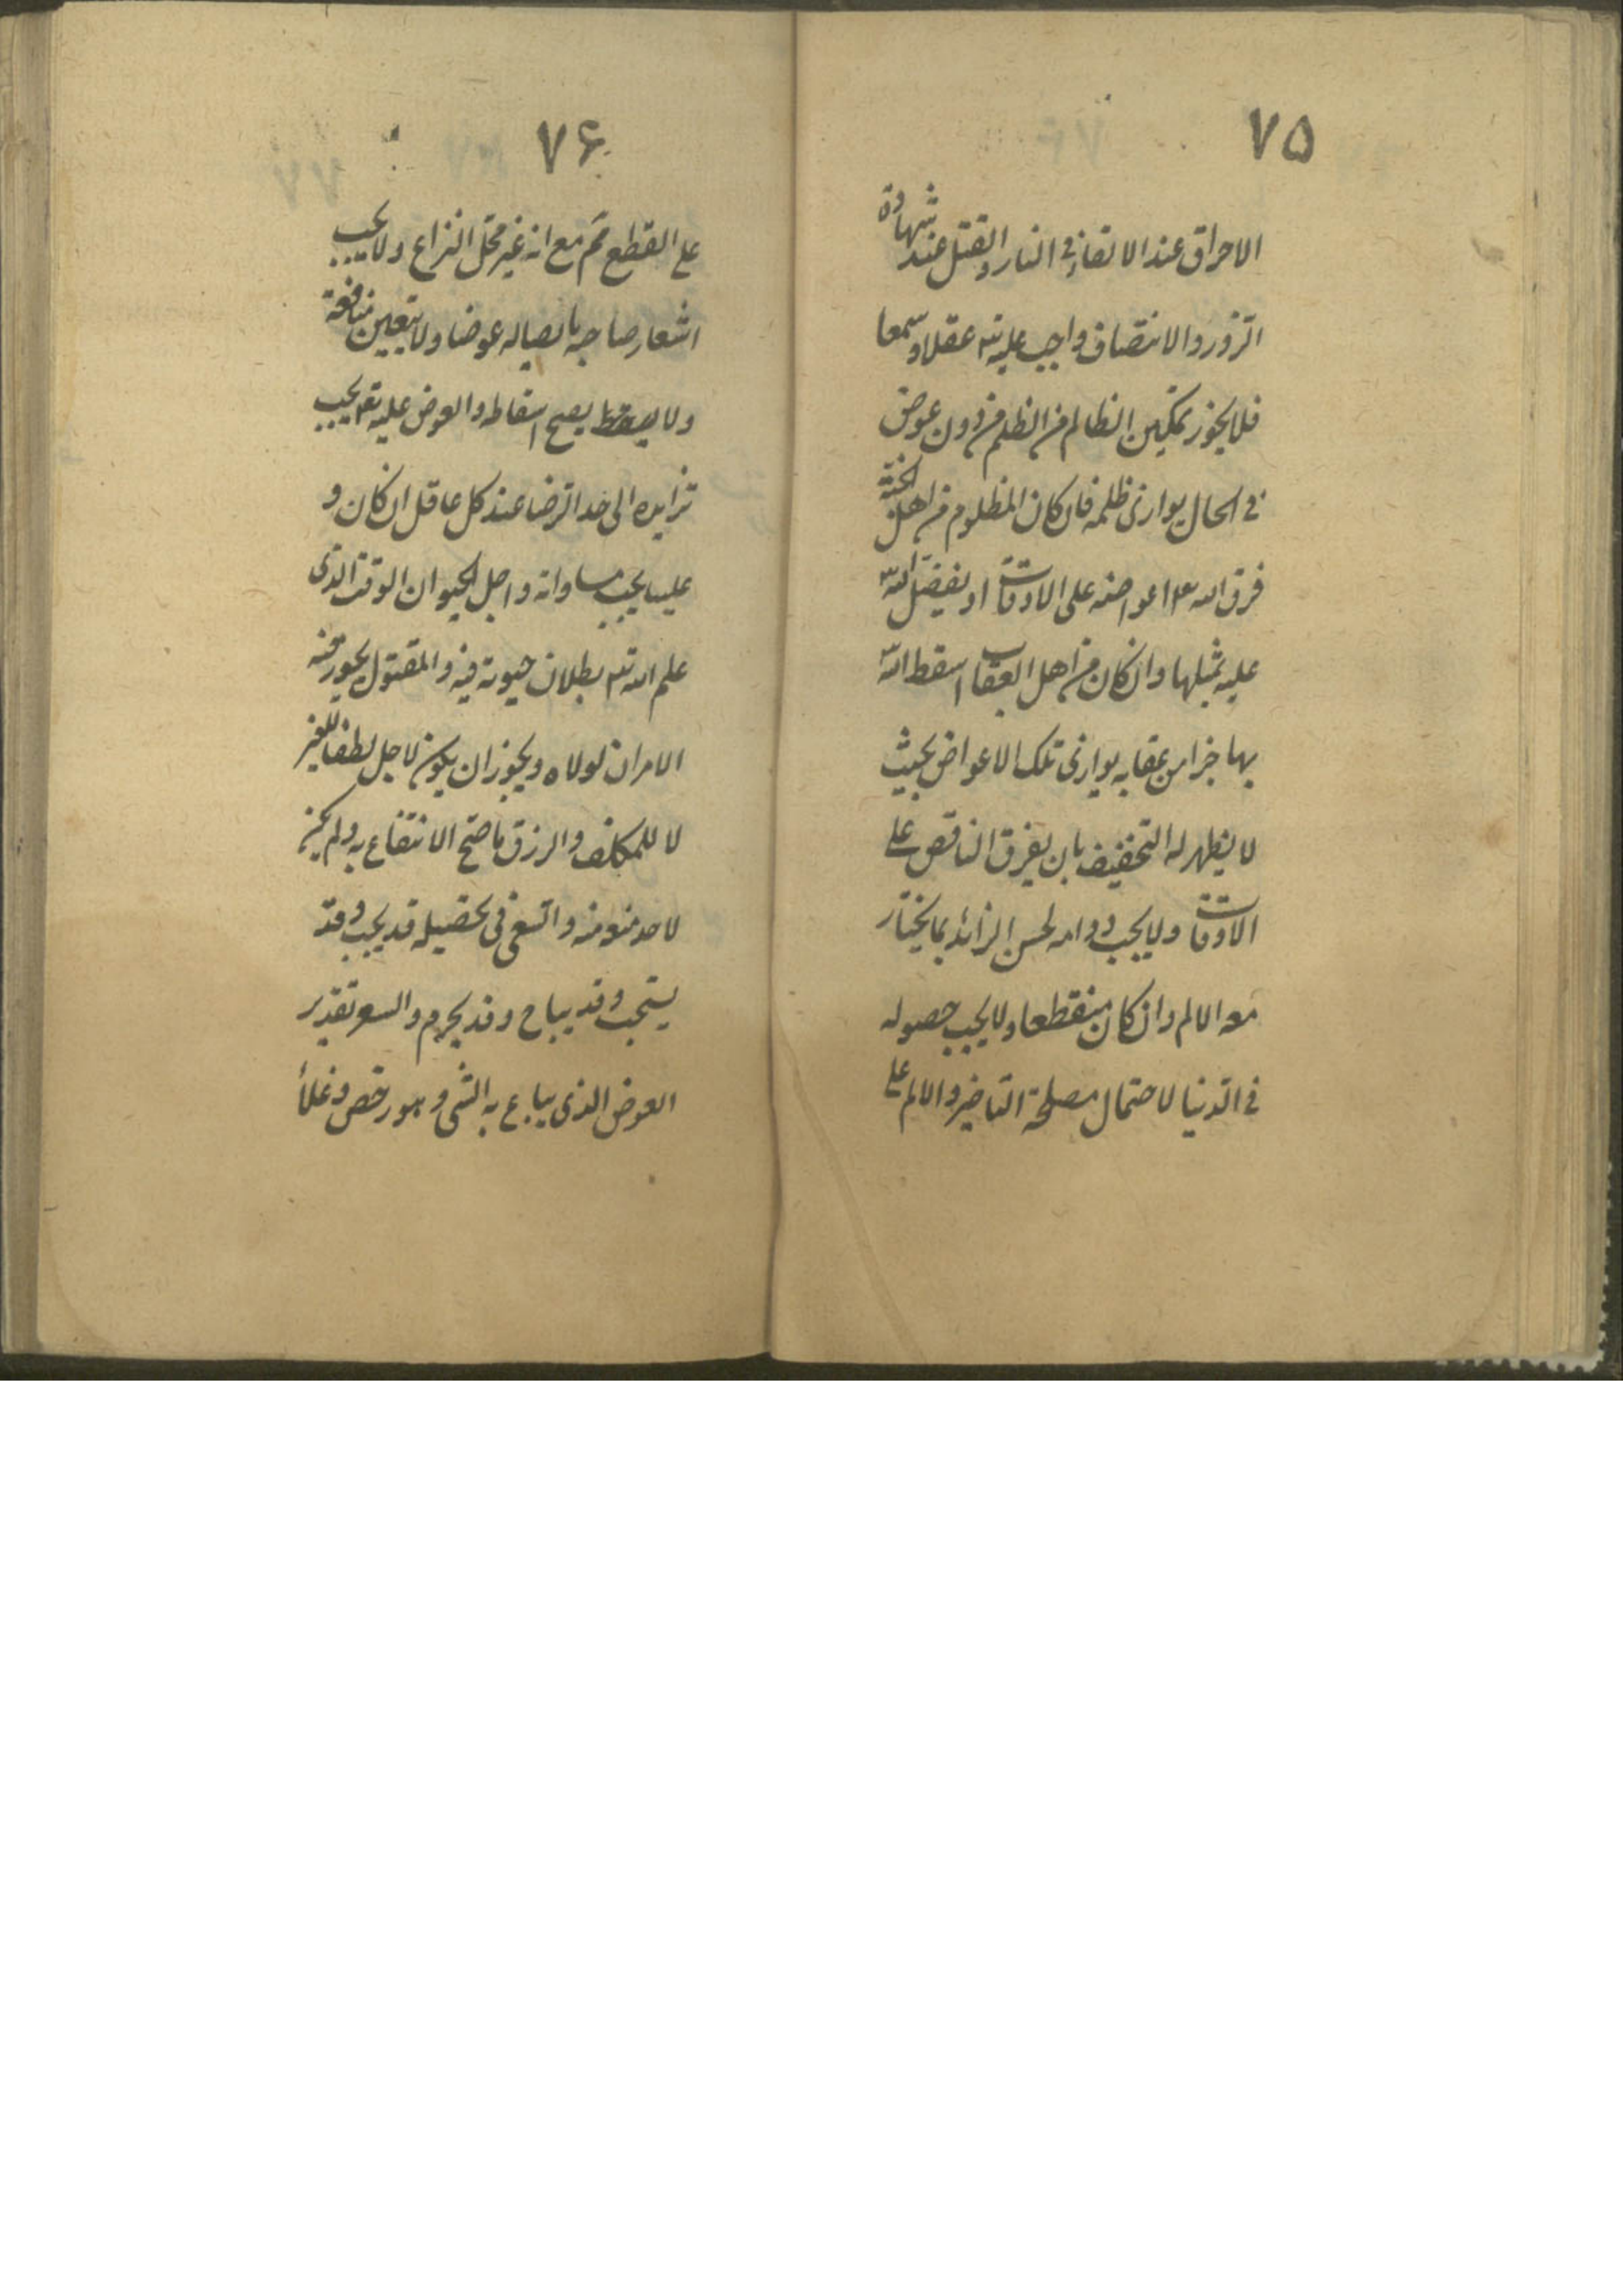 ٧۵
الاحراق عند الالقاء فی النار والقتل عند شهادة
الزور والانتصاف واجب علیه تع عقلا وسمعا
فلا یجوز تمکین الظالم من الظلم من دون عوض
فی الحال یوازی ظلمه فان کان المظلوم من اهل الجنة
فرق الله اعواضه علی الاوقات او یفضل الله
علیه بمثلها وان کان من اهل العقاب اسقط الله
بها جزا من عقابه یوازی تلک الاعواض بحیث
لا یظهر له التخفیف بان یفرق الناقص علی
الاوقات ولا یجب دوامه لحسن الزائد بما یختار
معه الالم وان کان منقطعا ولا یجب حصوله
فی الدنیا لاحتمال مصلحة التاخیر والالم علی
٧۶
علی القطع ثم مع انه غیر محل النزاع ولا یجب
اشعار صاحبه بایصاله عوضا ولا یتعین منافعه
ولا یصح اسقاطه والعوض علیه تع یجب
تزایده الی حد الرضا عند کل عاقل ان کان و
علینا یجب مساواته واجل الحیوان الوقت الذی
علم الله تع بطلان حیوته فیه والمقتول یجوز فیه
الامران لولاه ویجوز ان یکون الاجل لطفا للغیر
لا للمکلف والرزق ما صح الانتفاع به ولم یکن
لاحد منعه منه والسعی فی تحصیله قد یجب وقد
یستحب وقد یباح وقد یحرم والسعر تقدیر
العوض الذی یباع به الشی وهو رخص وغلاء